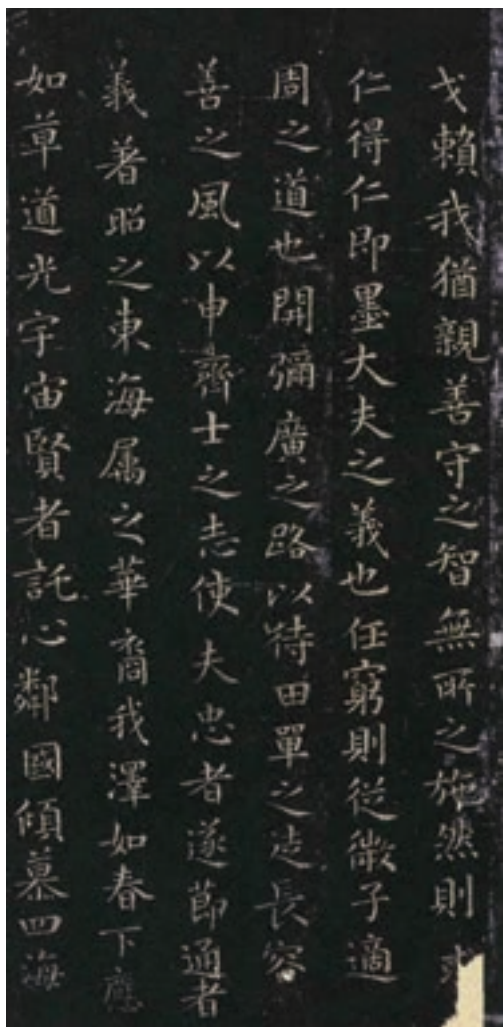 戈賴我猶親善守之智無所之施然則
仁得仁即墨大夫之義也任窮則従微子適
周之道也開彌廣之路以待田單之徒長容
善之風以申齊士之志使夫忠者遂節通者
義著昭之東海属之華裔我澤如春下應
如草道光宇宙賢者託心鄰國傾慕四海